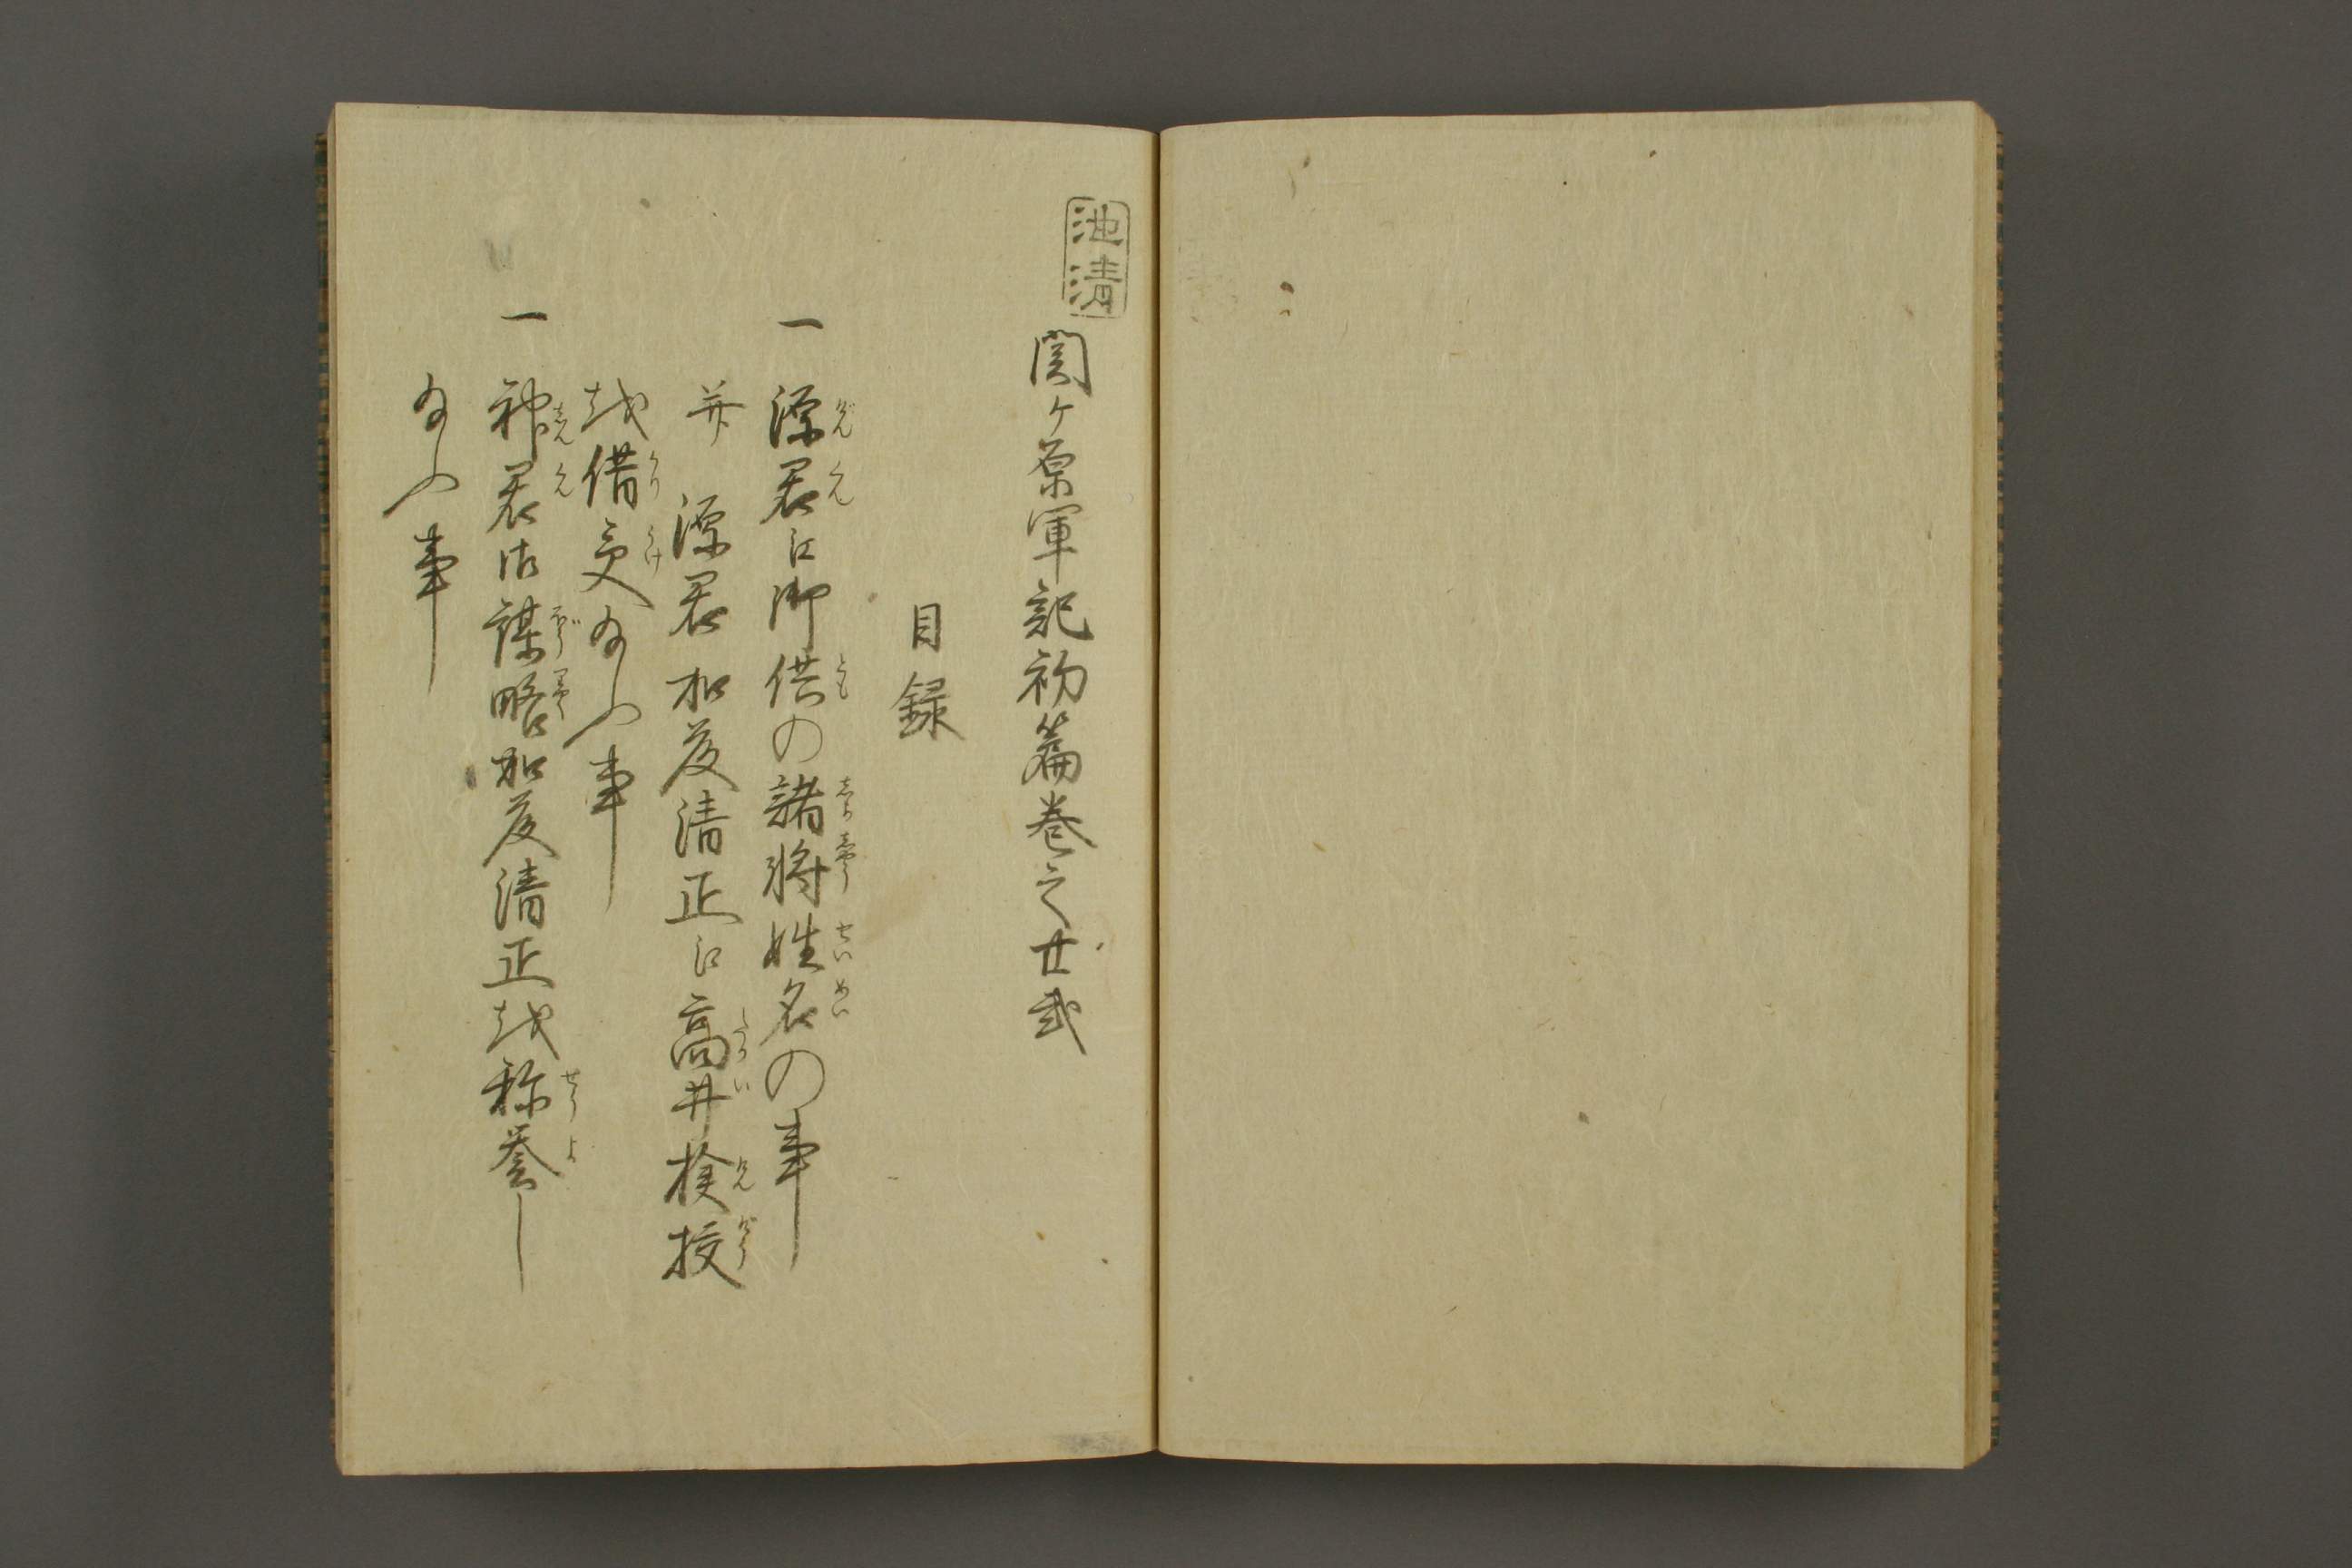 池清
関ヶ原軍記初篇巻之廿弐
目録
一 源君江御供の諸将姓名の事
并 源君加藤清正江高井検校
を借受給ふ事
一 神君御謀略加藤清正を称誉し
給ふ事